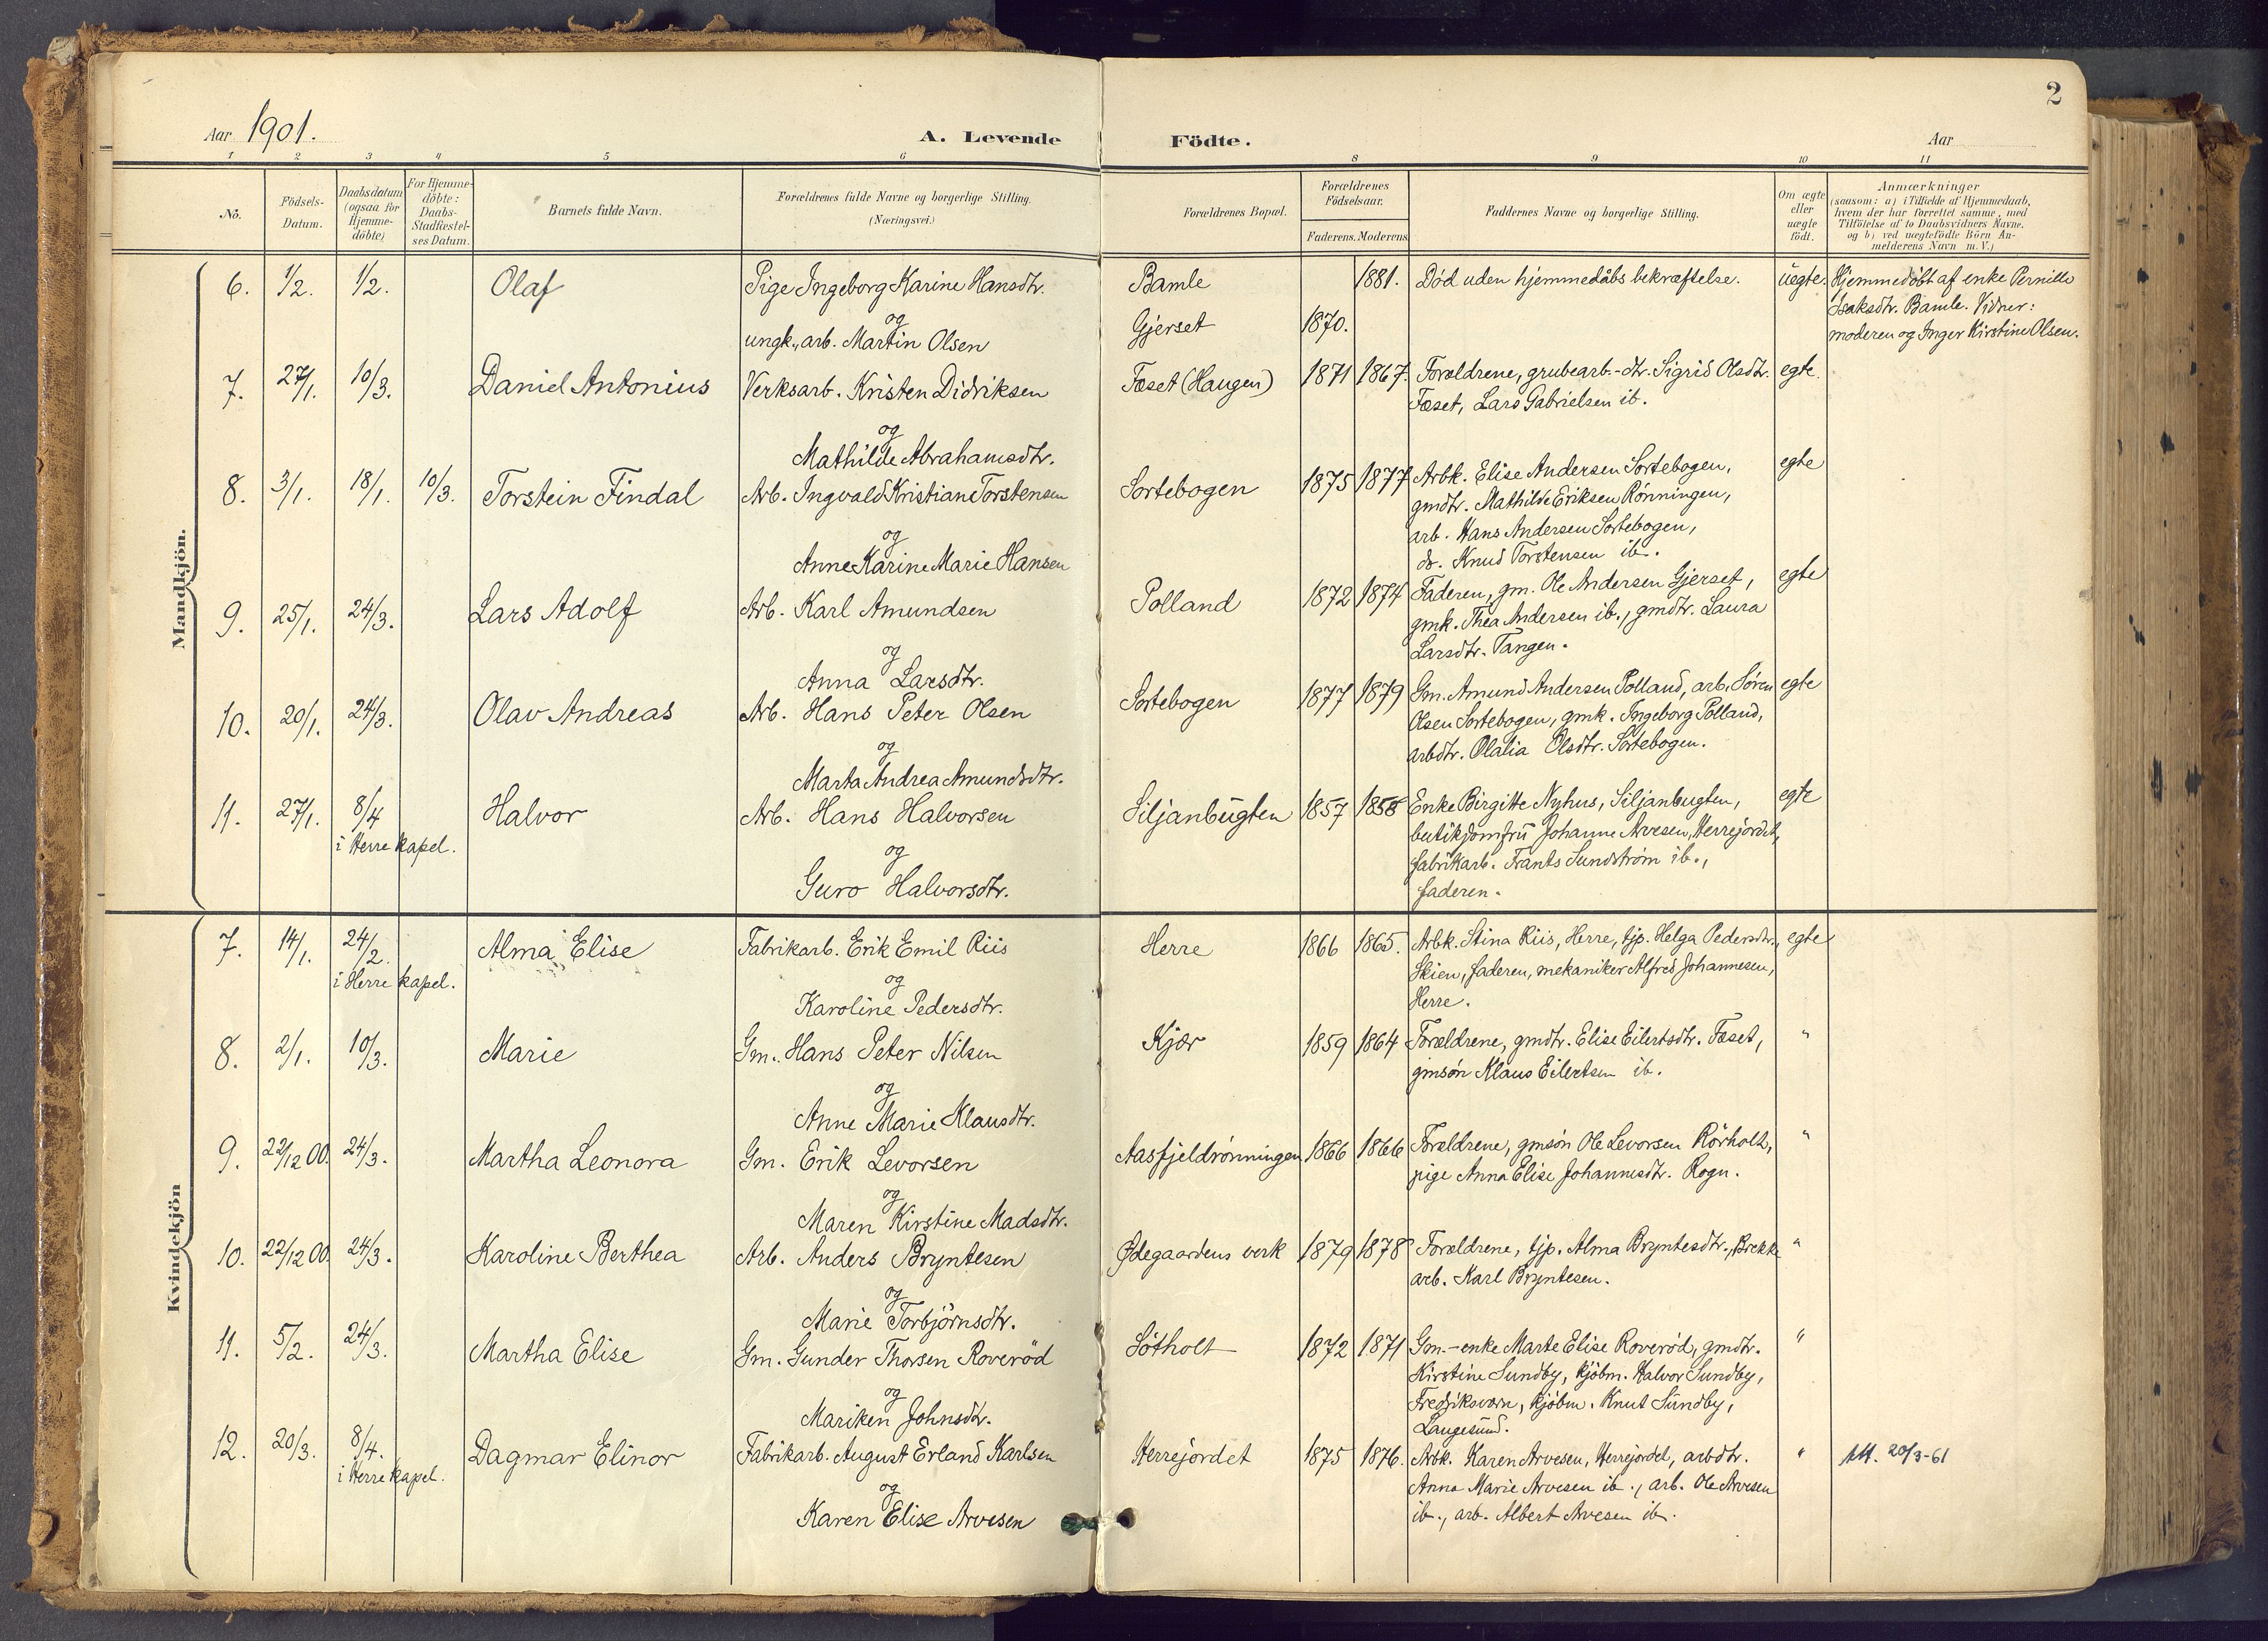 2
Aar 1901.
A. Levende Födte.
Aar
1 2 3 4 5 6 8 9 10 11
No.
Födsels-
Datum.
Daabsdatum
(ogsaa for
Hjemme-
döbte)
For Hjemme-
döbte:
Daabs-
Stadfæstel-
ses Datum.
Barnets fulde Navn.
Forældrenes fulde Navne og borgerlige Stilling.
(Næringsvei.)
Forældrenes Bopæl.
Forældrenes
Födselsaar.
Faderens. Moderens
Faddernes Navne og borgerlige Stilling.
Om ægte
eller
uægte
födt.
Anmærkninger
(saasom: a) i Tilfælde af Hjemmedaab,
hvem der har forrettet samme, med
Tilföielse af to Daabsvidners Navne.
og b) ved uægtefödte Börn An-
melderens Navn m. V.)
Mandkjön.
6. 1/2. 1/2. Olaf Pige Ingeborg Karine Hansdtr. Bamle 1881. Död uden hjemmedåbs bekræftelse. uegte. Hjemmedöbt af enke Pernille
og
Isaksdtr. Bamle. Vidner:
ungk., arb. Martin Olsen Gjerset 1870. moderen og Inger Kirstine Olsen.
7. 27/1. 10/3. Daniel Antonius Verksarb. Kristen Didriksen Fæset (Haugen) 1871 1867. Forældrene, grubearb.-dtr. Sigrid Olsdtr. egte.
Fæset, Lars Gabrielsen ib.
og
Mathilde Abrahamsdtr.
8. 3/1. 18/1. 10/3. Torstein Findal Arb. Ingvald Kristian Torstensen Sortebogen 1875 1877 Arbk. Elise Andersen Sortebogen, egte
gmdtr. Mathilde Eriksen Rönningen,
arb. Hans Andersen Sortebogen,
do. Knud Torstensen ib.
og
Anne Karine Marie Hansen
9. 25/1. 24/3. Lars Adolf Arb. Karl Amundsen Polland 1872 1874 Faderen, gm. Ole Andersen Gjerset, egte
gmk. Thea Andersen ib., gmdtr. Laura
Larsdtr. Tangen.
og
Anna Larsdtr.
10. 20/1. 24/3. Olav Andreas Arb. Hans Peter Olsen Sortebogen 1877 1879 Gm. Amund Andersen Polland, arb. Sören egte
Olsen Sortebogen, gmk. Ingeborg Polland,
arbdtr. Olalia Olsdtr. Sortebogen.
og
Marta Andrea Amundsdtr.
11. 27/1. 8/4 Halvor Arb. Hans Halvorsen Siljanbugten 1857 1858 Enke Birgitte Nyhus, Siljanbugten, egte
i Herre kapel.
butikjomfru Johanne Arvesen, Herrejordet,
fabrikarb. Frants Sundström ib.,
faderen.
og
Guro Halvorsdtr.
Kvindekjön
7. 14/1. 24/2. Alma Elise Fabrikarb. Erik Emil Riis Herre 1866 1865. Arbk. Stina Riis, Herre, tjp. Helga Pedersdtr., egte
i Herre kapel.
Skien, faderen, mekaniker Alfred Johannesen,
Herre.
og
Karoline Pedersdtr.
8. 2/1. 10/3. Marie Gm. Hans Peter Nilsen Kjær 1859 1864 Forældrene, gmdtr. Elise Eilertsdtr. Fæset, "
gmsön Klaus Eilertsen ib.
og
Anne Marie Klausdtr.
9. 22/12 00. 24/3. Martha Leonora Gm. Erik Levorsen Aasfjeldrönningen 1866 1866 Forældrene, gmsön Ole Levorsen Rörholt, "
pige Anna Elise Johannesdtr. Rogn.
og
Maren Kirstine Madsdtr.
10. 22/12 00. 24/3. Karoline Berthea Arb. Anders Bryntesen Ødegaardens verk 1879 1878 Forældrene, tjp. Alma Bryntesdtr., Brekke "
arb. Karl Bryntesen.
og
Marie Torbjörnsdtr.
11. 5/2. 24/3. Martha Elise Gm. Gunder Thorsen Roveröd Sötholt 1872 1871 Gm.-enke Marte Elise Roveröd, gmdtr. "
Kirstine Sundby, kjöbm. Halvor Sundby,
Fredriksværn, kjöbm. Knut Sundby,
Langesund.
og
Mariken Johnsdtr.
12. 20/3. 8/4. Dagmar Elinor Fabrikarb. August Erland Karlsen Herrejordet 1875 1876. Arbk. Karen Arvesen, Herrejordet, arbdtr. " Att. 20/3-61
i Herre kapel.
Anna Marie Arvesen ib., arb. Ole Arvesen
ib., arb. Albert Arvesen ib.
og
Karen Elise Arvesen